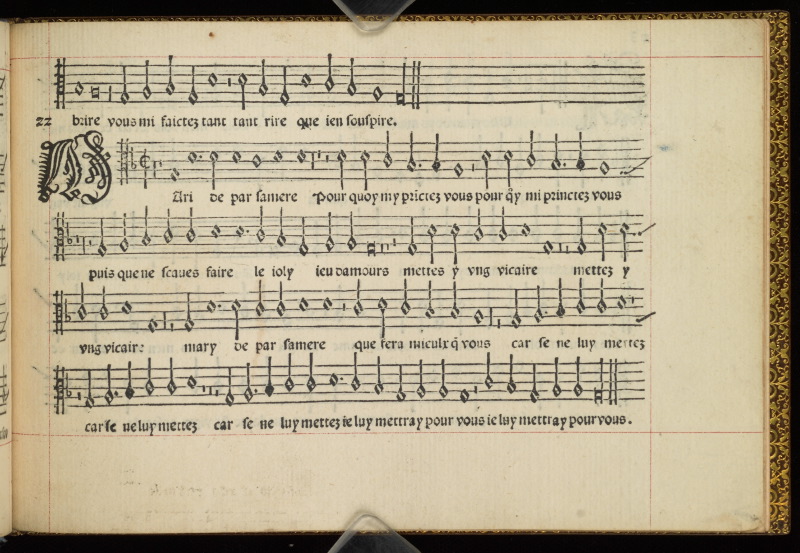 zz brire vous mi faictez tant tant rire que ien souspire.
MAri de par samere Pour quoy my prictez vous pour q̄y mi princtez vous
puis que ne scaues faire le ioly ieu damours mettes y vng vicaire mettez y
vng vicaire mary de par samere que fera mieulx q̄ vous car se ne luy mettez
car se ne luy mettez car se ne luy mettez ie luy mettray pour vous ie luy mettray pour vous.